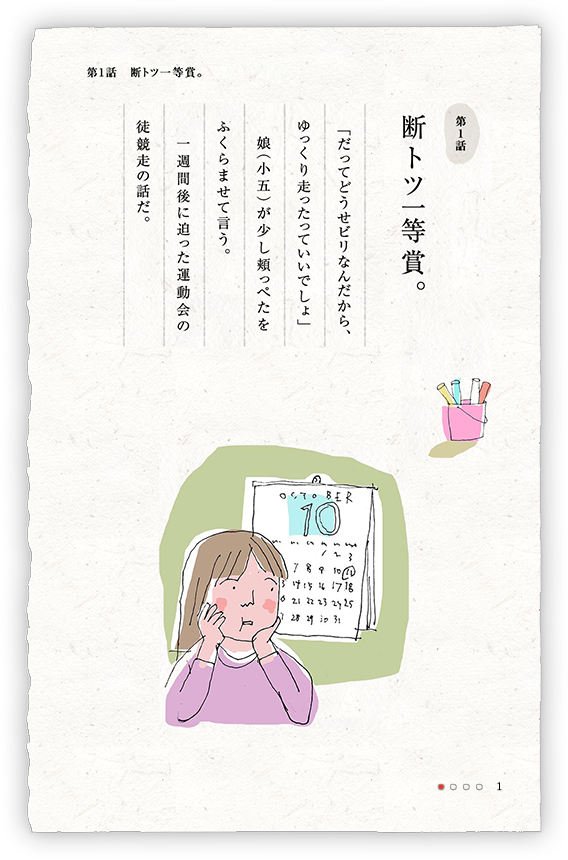 第1話　断トツ一等賞。
第1話
断トツ一等賞。
「だってどうせビリなんだから、
ゆっくり走ったっていいでしょ」
娘（小五）が少し頬っぺたを
ふくらませて言う。
一週間後に迫った運動会の
徒競走の話だ。
OCTOBER
10
1 2 3
7 8 9 10 11
14 15 16 17 18
21 22 23 24 25
28 29 30 31
1